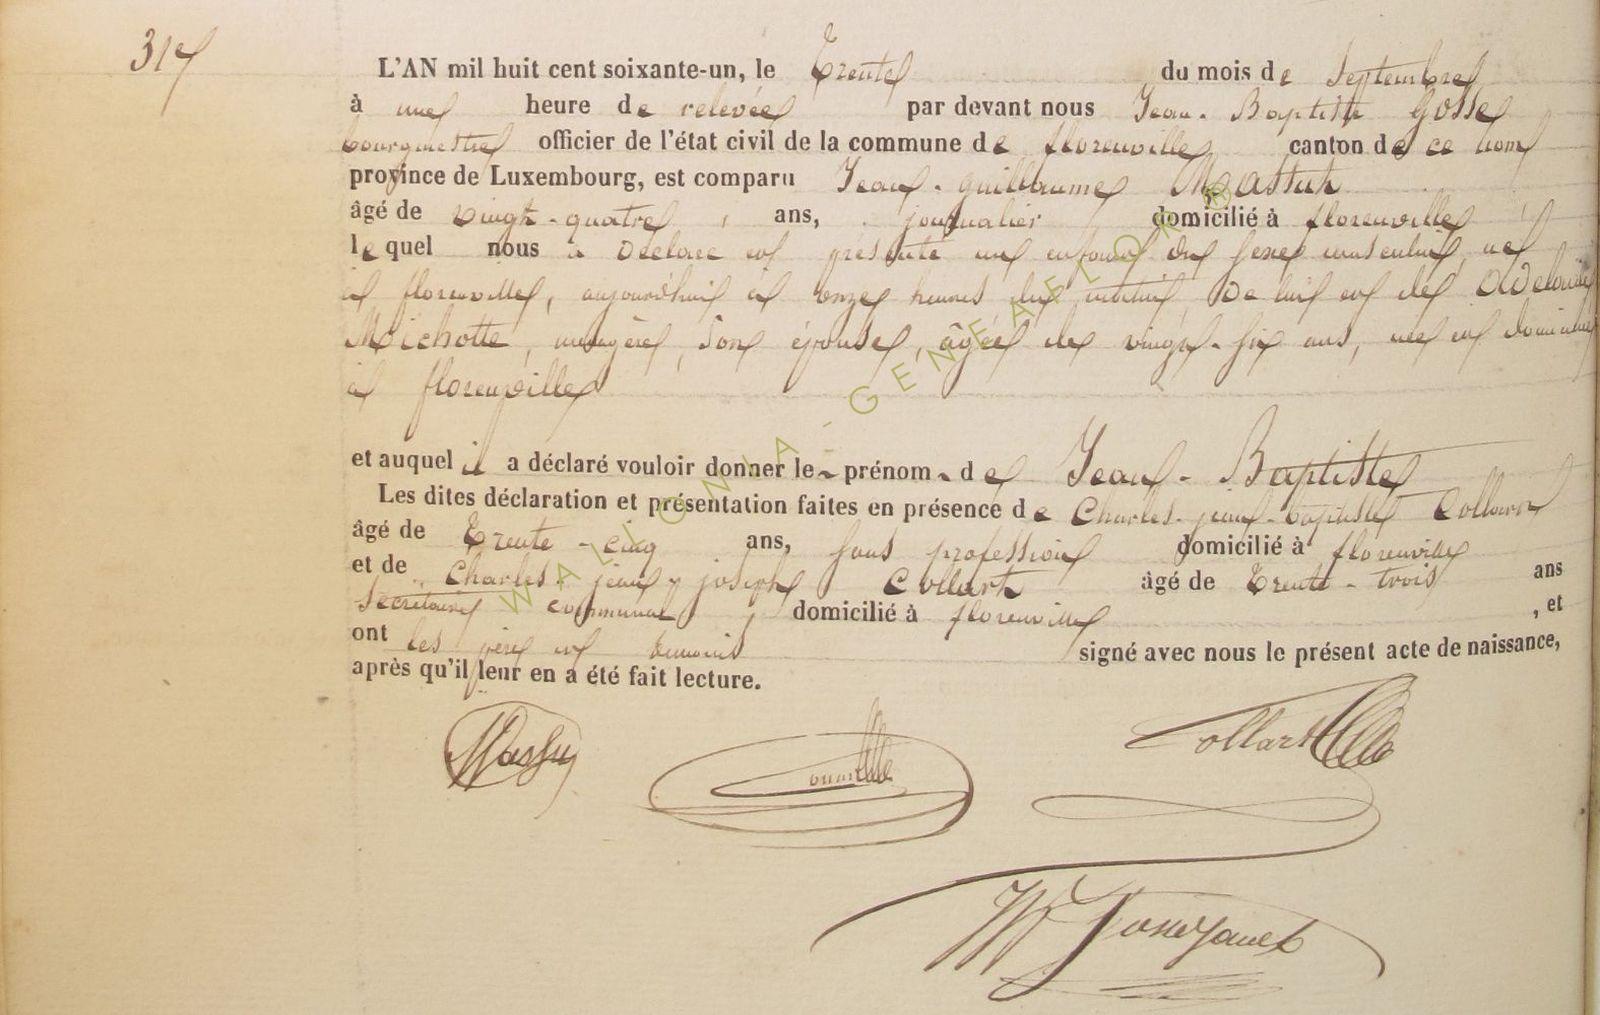 L'AN mil huit cent soixante-un, le Trente du mois de Septembre
à une heure de relevée par devant nous Jean-Baptiste Gosse
bourgmestre officier de l'état civil de la commune de florenville canton de ce nom
province de Luxembourg, est comparu Jean-guillaume Massut
âgé de vingt-quatre, ans, journalier domicilié à florenville
lequel nous a déclaré et présenté un enfant du sexe masculin, né
à florenville, aujourd'hui à onze heures du matin, de lui et de Adelaide
Michotte, ménagère, son épouse, âgée de vingt-six ans, née et domiciliée
à florenville
et auquel il a déclaré vouloir donner le prénom de Jean-Baptiste
Les dites déclaration et présentation faites en présence de Charles-jean-baptiste
âgé de Trente-cinq ans, sans profession domicilié à florenville
et de Charles-jean-joseph Collart âgé de Trente-trois ans
Secrétaire communal, domicilié à florenville, et
ont les père et témoins signé avec nous le présent acte de naissance,
après qu'il leur en a été fait lecture.
Massu
Collart
WALLONIA-GENEALOR